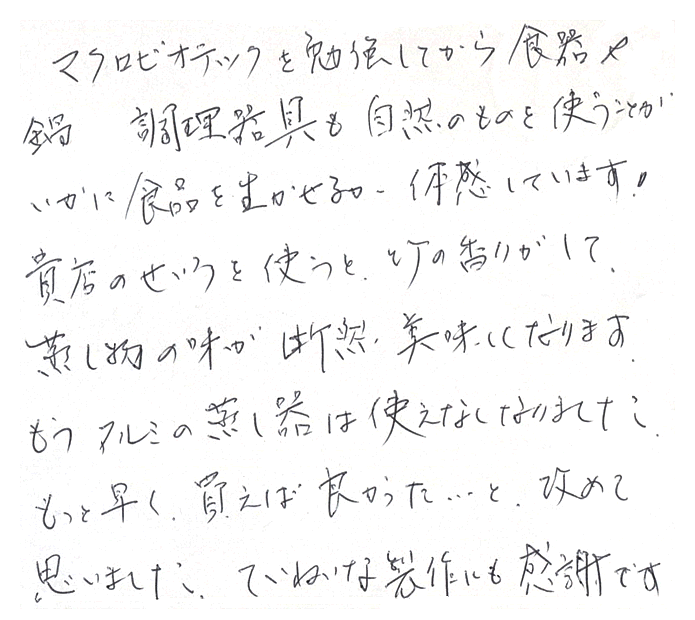 マクロビオティックを勉強してから食器や
鍋 調理器具も自然のものを使うことが
いかに食品を生かせるか 体感しています!
貴店のせいろを使うと、竹の香りがして、
蒸し物の味が断然、美味しくなります。
もうアルミの蒸し器は使えなくなりました。
もっと早く、買えば良かった…と、改めて
思いました。ていねいな製作にも感謝です